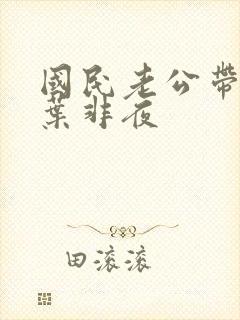 國民老公帶
葉非夜
田滚滚